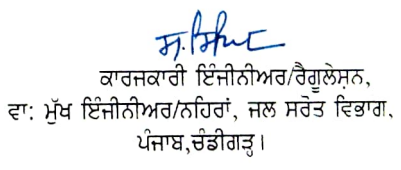 ਕਾਰਜਕਾਰੀ ਇੰਜੀਨੀਅਰ/ਰੈਗੂਲੇਸ਼ਨ,
ਵਾ: ਮੁੱਖ ਇੰਜੀਨੀਅਰ/ਨਹਿਰਾਂ, ਜਲ ਸਰੋਤ ਵਿਭਾਗ,
ਪੰਜਾਬ,ਚੰਡੀਗੜ੍ਹ।